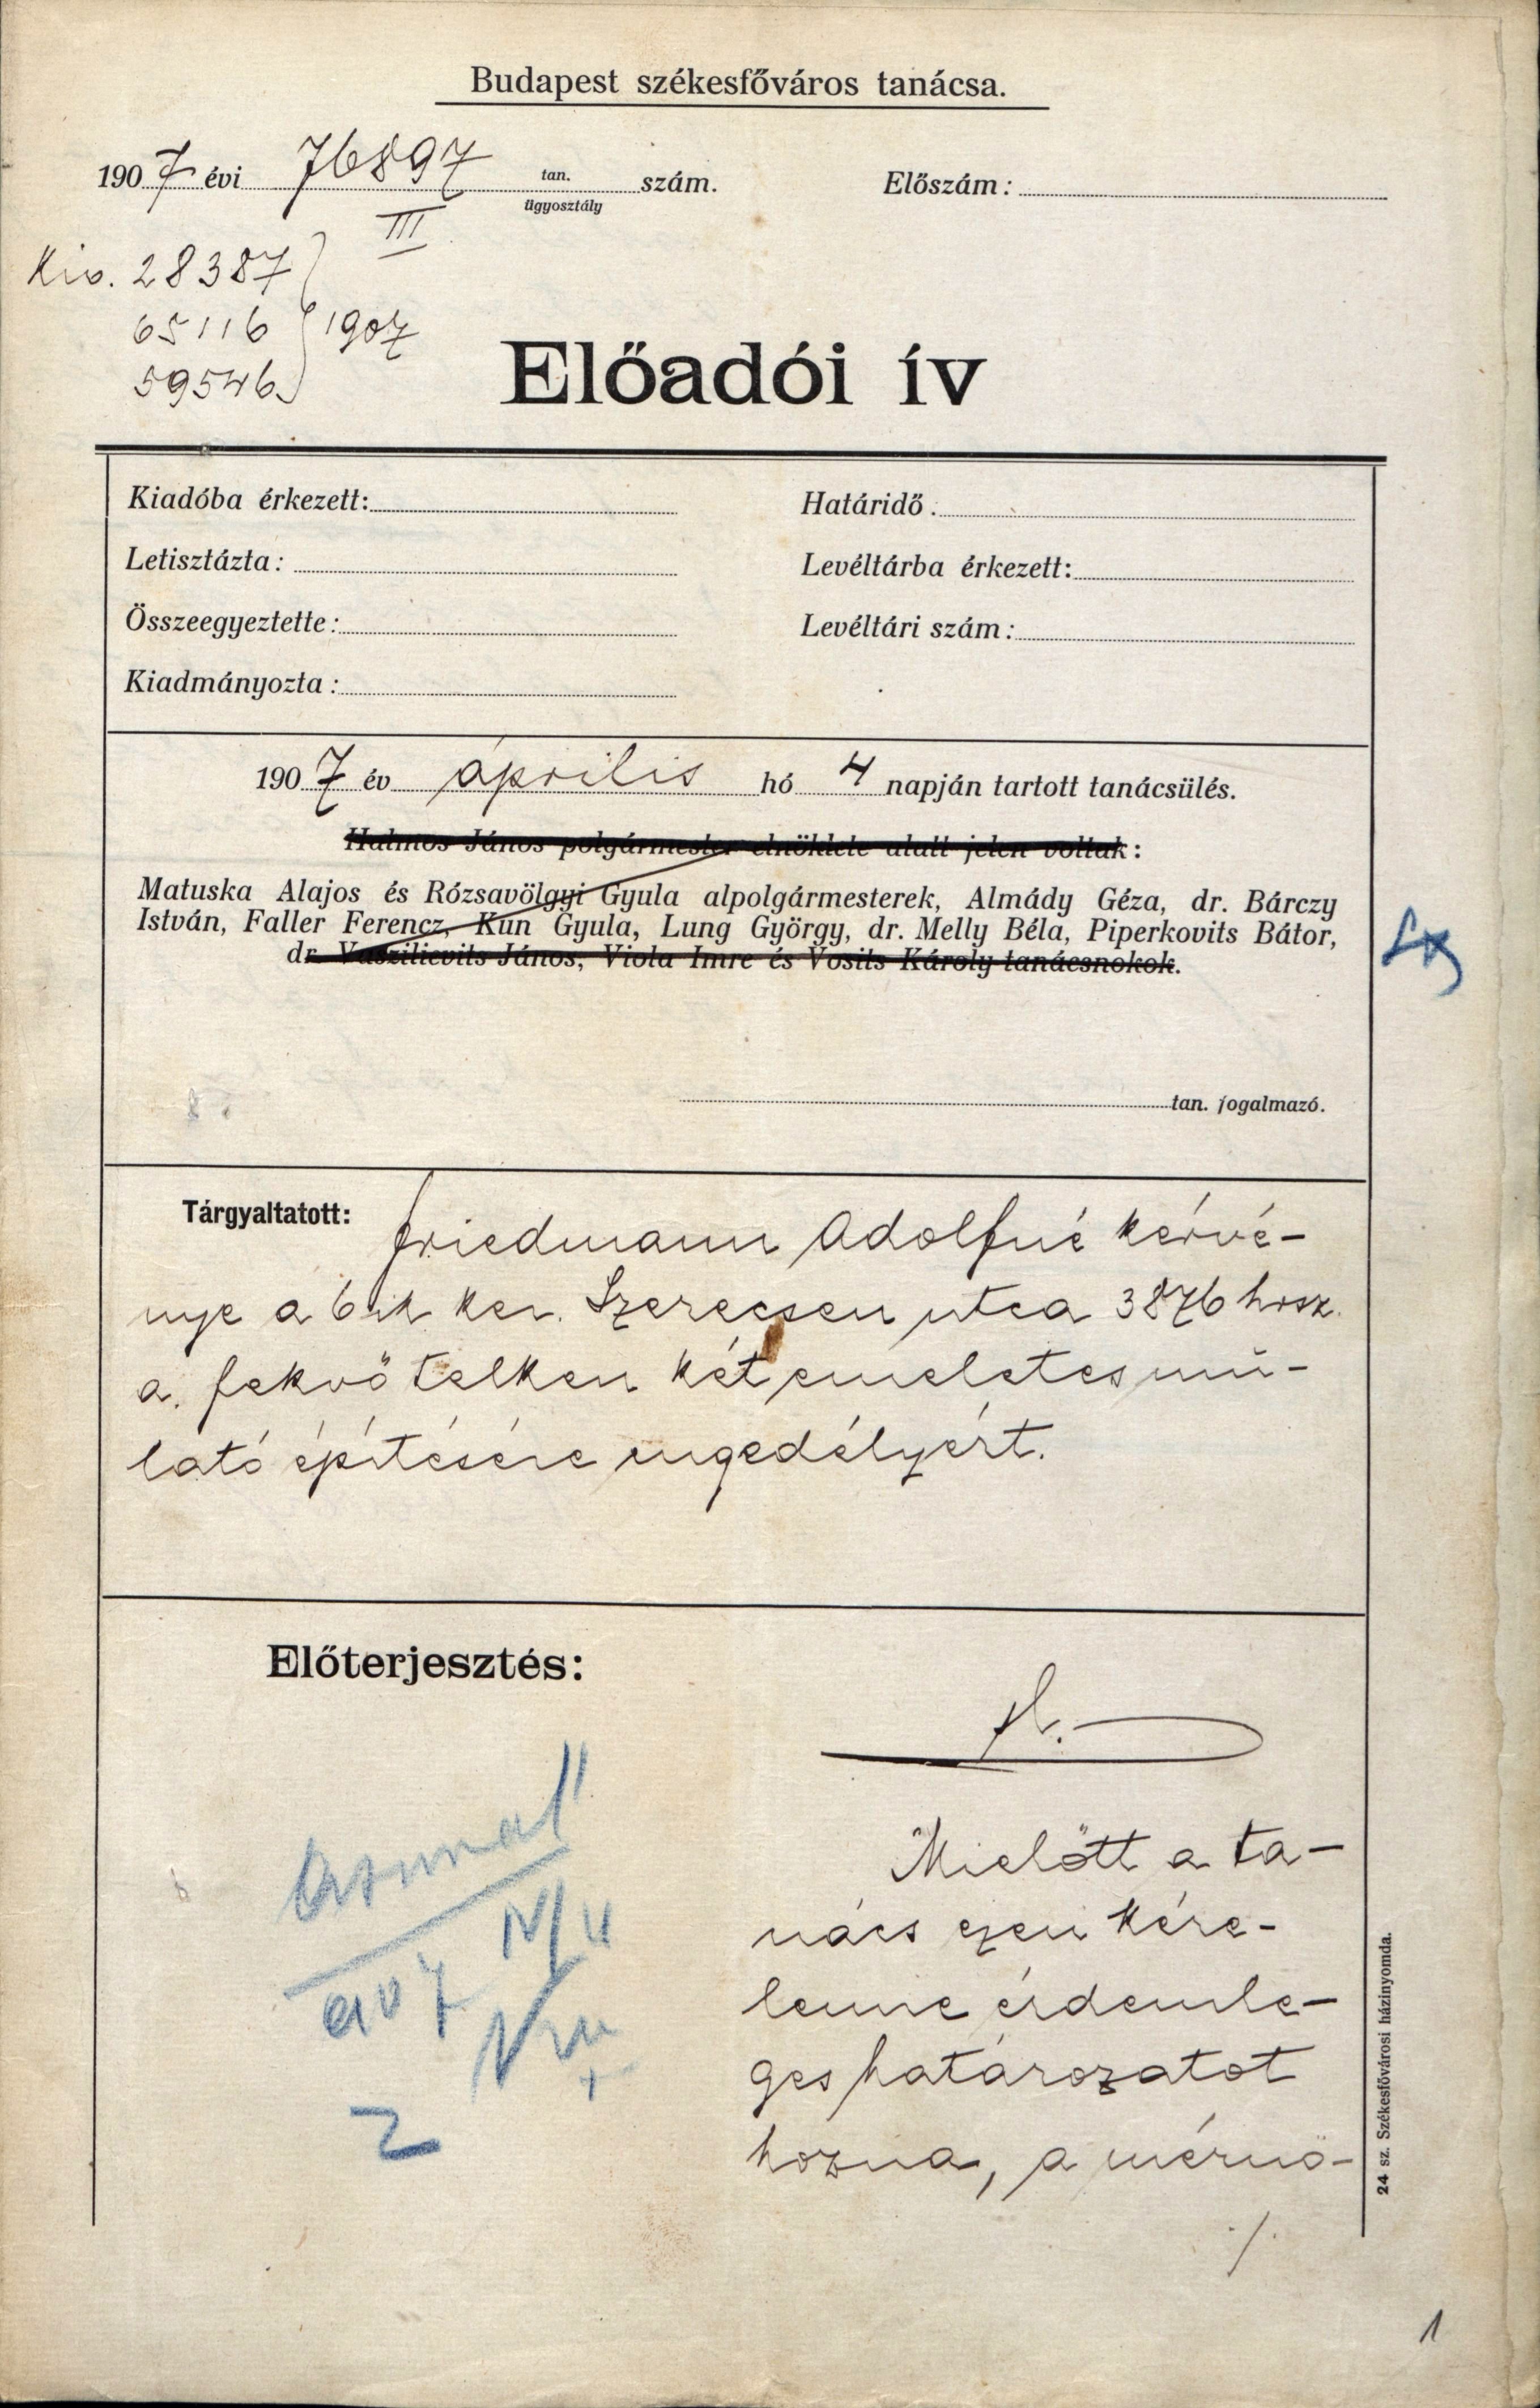 Budapest székesfőváros tanácsa.
1907 évi 76897 tan. ügyosztály szám.
III
Előszám:
Kiv. 28387
65116 1907
59546
Előadói ív
Kiadóba érkezett:
Határidő.
Letisztázta:
Levéltárba érkezett:
Összeegyeztette:
Levéltári szám:
Kiadmányozta:
1907 év április hó 4 napján tartott tanácsülés.
Halmos János polgármester elnöklete alatt jelen voltak:
Matuska Alajos és Rózsavölgyi Gyula alpolgármesterek, Almády Géza, dr. Bárczy
István, Faller Ferencz, Kun Gyula, Lung György, dr. Melly Béla, Piperkovits Bátor,
dr. Vaszilievits János, Viola Imre és Vosits Károly tanácsnokok.
tan. fogalmazó.
Tárgyaltatott: Friedmann Adolfné kérvé-
nye a 6ik ker. Szerecsen utca 3876 hrsz.
a. fekvő telken két emeletes mu-
lató építésére engedélyért.
Előterjesztés:
H.
Azonnal
907 IV/4
2
Mielőtt a ta-
nács ezen kére-
lemre érdemle-
ges határozatot
hozna, a mérnö-
./.
24 sz. Székesfővárosi házinyomda.
1